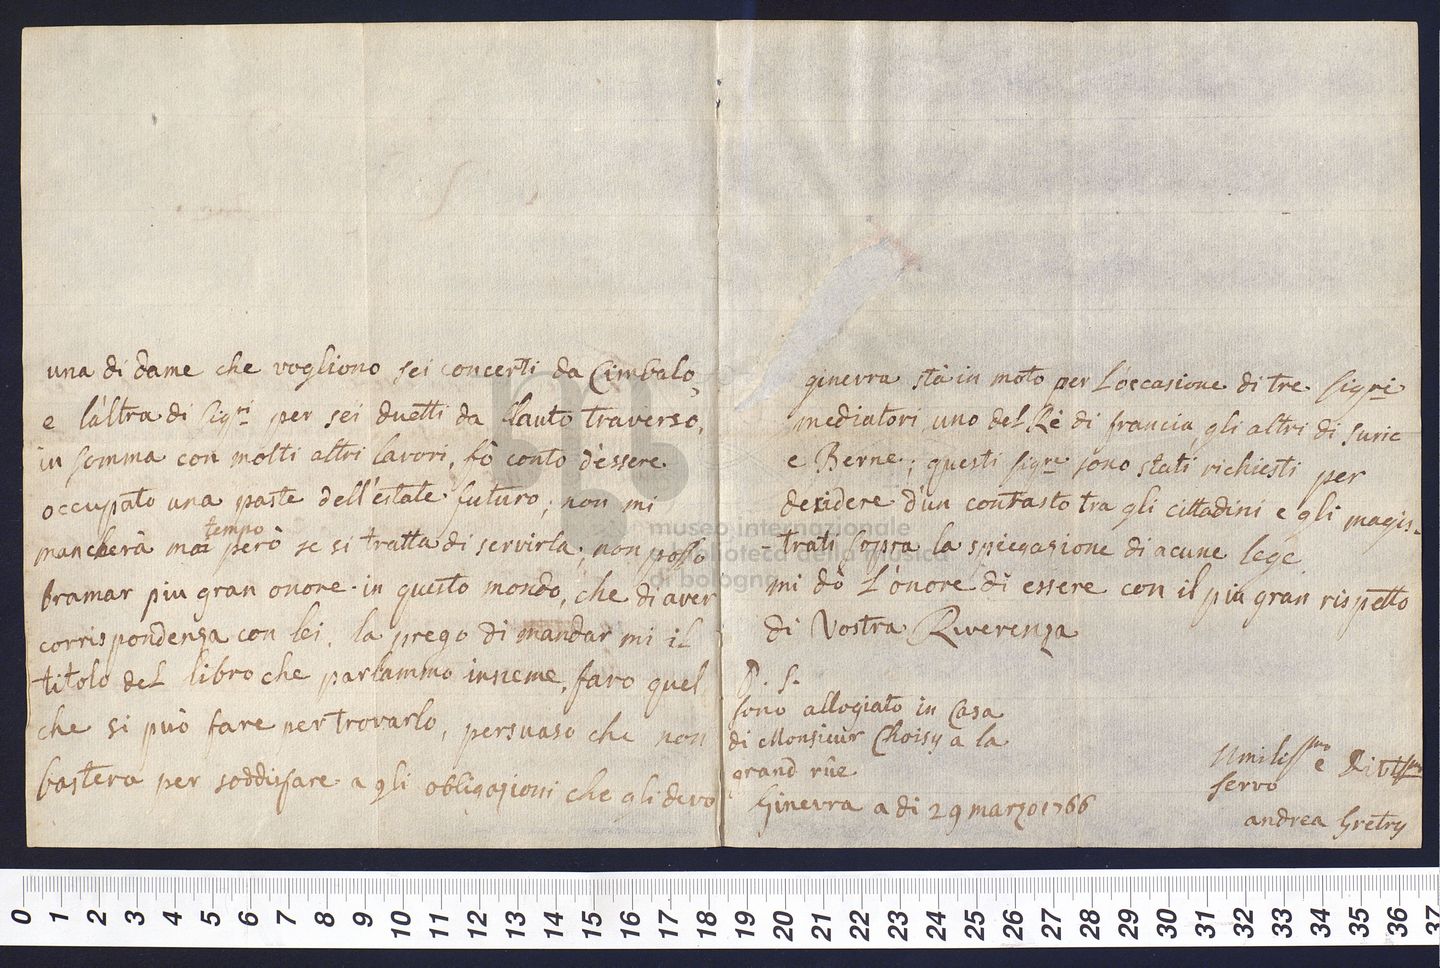 una di dame che vogliono sei concerti da Cimbalo,
e l'altra di Sigri per sei duetti da flauto traverso,
in somma con molti altri lavori, fò conto d'essere
occupato una parte dell'estate futuro, non mi
tempo
mancherà mai però se si tratta di servirla, non posso
bramar piu gran onore in questo mondo, che di aver
corrispondenza con lei. la prego di mandar mi il
titolo del libro che parlammo insieme, faro quel
che si può fare per trovarlo, persuaso che non
bastera per soddisfare a gli obligazioni che gli devo
ginevra stà in moto per l'occasione di tre sigri
mediatori uno del Rè di francia gli altri di Suric
e Berne; questi sigri sono stati richiesti per
decidere d'un contrasto tra gli cittadini e gli magis-
-trati sopra la spiegazione di acune lege.
mi dò l'onore di essere con il piu gran rispetto
di Vostra Riverenza
P. S.
sono allogiato in Casa
di Monsieur Choisy a la
grand rüe
Ginevra a di 29 marzo 1766
Umilissmo e
servo
andrea Gretry
museo internazionale
e biblioteca della musica
di bologna
0 1 2 3 4 5 6 7 8 9 10 11 12 13 14 15 16 17 18 19 20 21 22 23 24 25 26 27 28 29 30 31 32 33 34 35 36 37